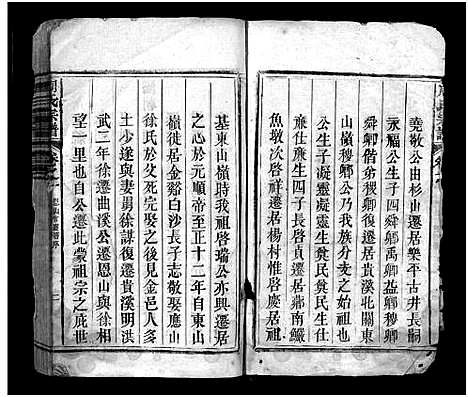 堯敬公由杉山遷居樂平古井長嗣
永福公生子四舜鄉禹鄉益鄉穆鄉
舜鄉偕弟稷鄉復遷居貴溪北關東
山嶺穆鄉公乃我族分支之始祖也
公生子凝靈凝靈生黃民黃民生仕
廉仕廉生四子長啓貞遷居鄱南鱖
魚墩次啓祥遷居楊村惟啓慶居祖
基東山嶺時我祖啓瑞公亦興遷居
之心於元順帝至正十二年自東山
嶺徙居金谿白沙長子志敬娶應山
徐氏於父死完娶之後見金邑人多
土少遂與妻舅徐謀復遷貴溪明洪
武三年徐遷曲溪公遷恩山與徐相
望一里也自公遷此蒙祖宗之庇世
周氏宗譜